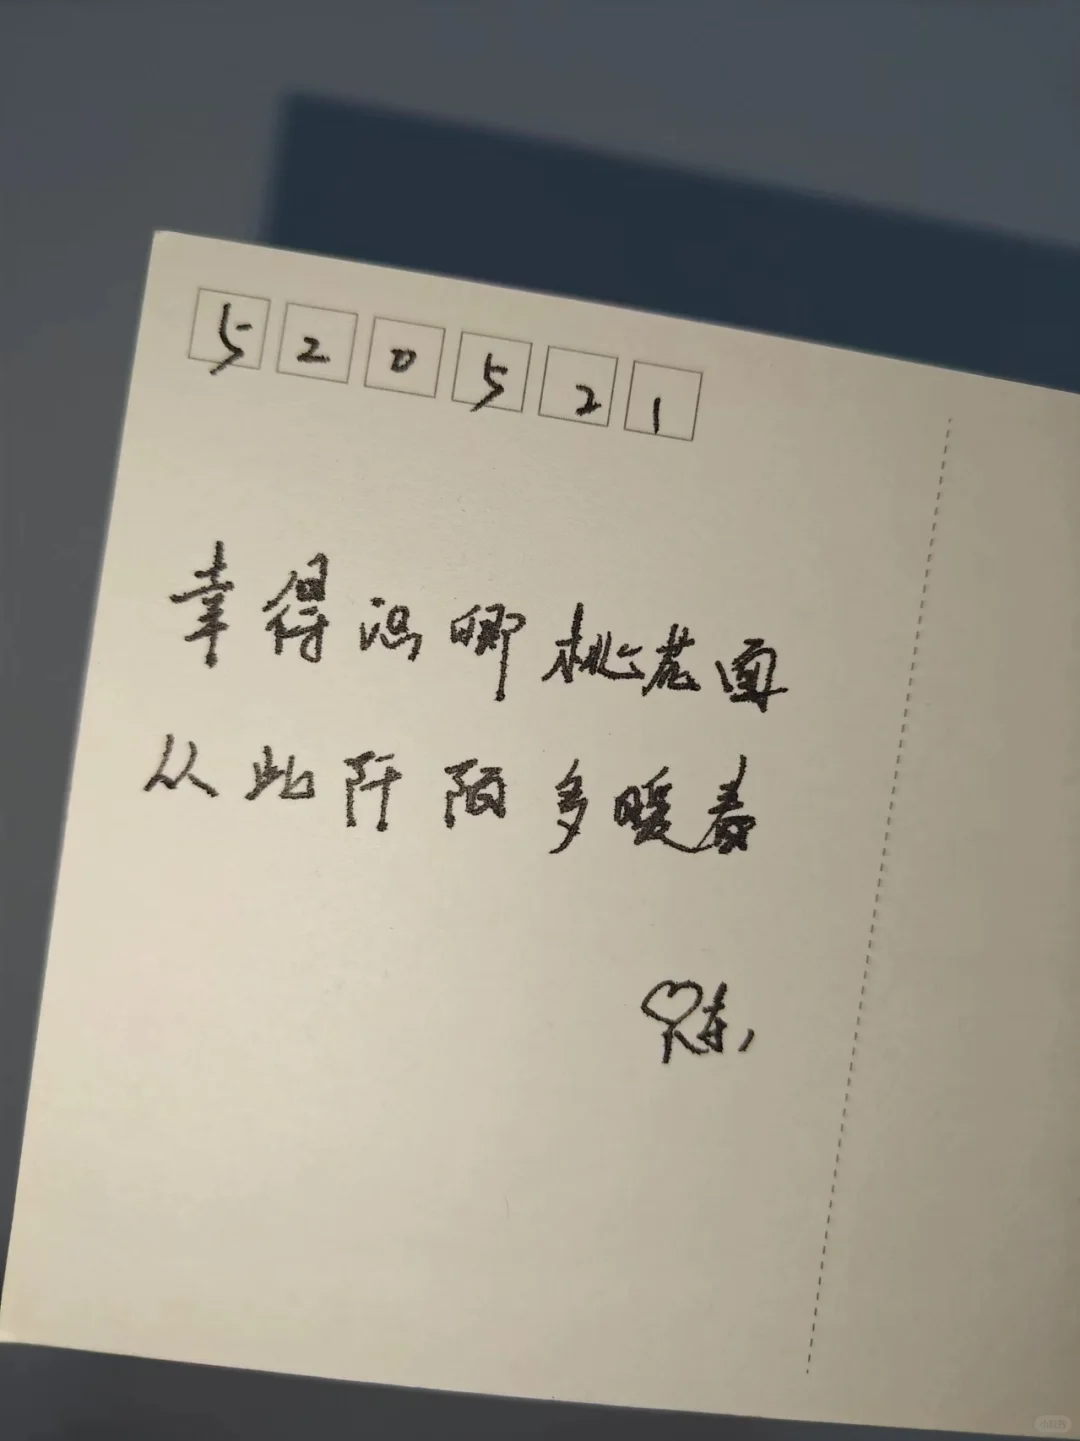 520521
幸得识卿桃花面
从此阡陌多暖春